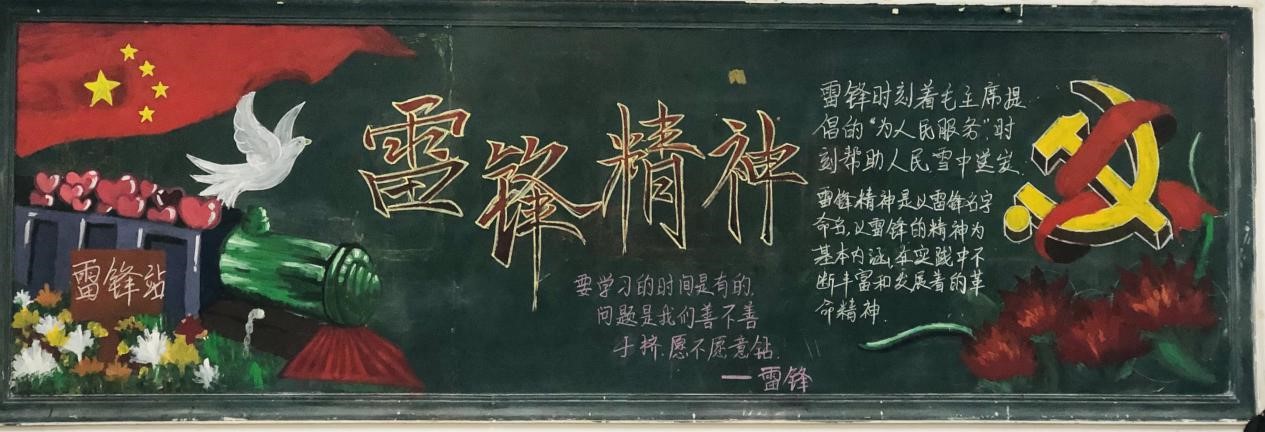 雷锋精神
雷锋站
要学习的时间是有的,
问题是我们善不善
于挤,愿不愿意钻.
——雷锋
雷锋时刻着毛主席提
倡的“为人民服务”时
刻帮助人民雪中送炭.
雷锋精神是以雷锋名字
命名,以雷锋的精神为
基本内涵,在实践中不
断丰富和发展着的革
命精神.